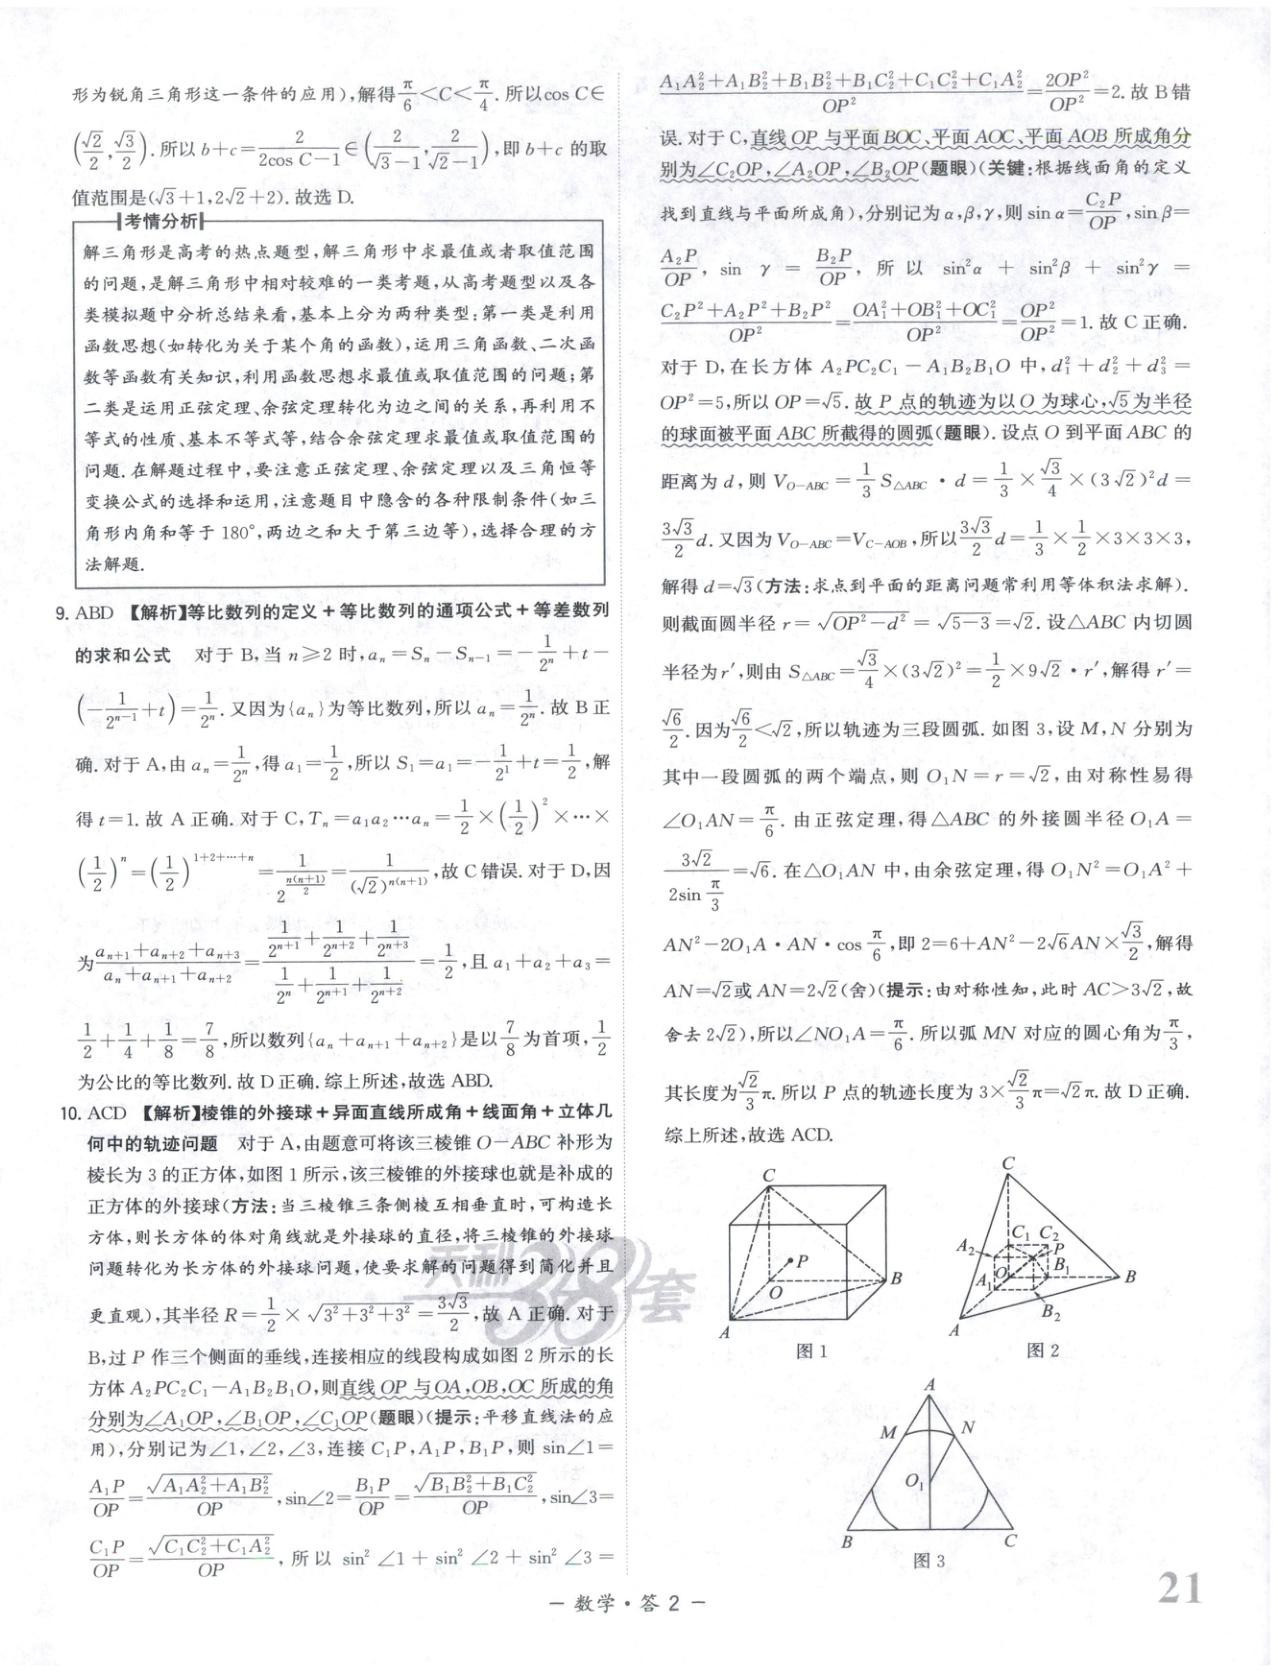 形为锐角三角形这一条件的应用),解得π/6<C<π/4.所以cos C∈
(√2/2,√3/2).所以b+c=2/(2cos C−1)∈(2/(√3−1),2/(√2−1)),即b+c的取
值范围是(√3+1,2√2+2).故选D.
考情分析
解三角形是高考的热点题型,解三角形中求最值或者取值范围
的问题,是解三角形中相对较难的一类考题,从高考题型以及各
类模拟题中分析总结来看,基本上分为两种类型:第一类是利用
函数思想(如转化为关于某个角的函数),运用三角函数、二次函
数等函数有关知识,利用函数思想求最值或取值范围的问题;第
二类是运用正弦定理、余弦定理转化为边之间的关系,再利用不
等式的性质、基本不等式等,结合余弦定理求最值或取值范围的
问题.在解题过程中,要注意正弦定理、余弦定理以及三角恒等
变换公式的选择和运用,注意题目中隐含的各种限制条件(如三
角形内角和等于180°,两边之和大于第三边等),选择合理的方
法解题.
9. ABD 【解析】等比数列的定义+等比数列的通项公式+等差数列
的求和公式 对于B,当n≥2时,aₙ=Sₙ−Sₙ₋₁=−1/2ⁿ+t−
(−1/2ⁿ⁻¹+t)=1/2ⁿ.又因为{aₙ}为等比数列,所以aₙ=1/2ⁿ.故B正
确.对于A,由aₙ=1/2ⁿ,得a₁=1/2,所以S₁=a₁=−1/2¹+t=1/2,解
得t=1.故A正确.对于C,Tₙ=a₁a₂⋯aₙ=1/2×(1/2)²×⋯×
(1/2)ⁿ=(1/2)^(1+2+⋯+n)=1/2^(n(n+1)/2)=1/(√2)^(n(n+1)),故C错误.对于D,因
为(aₙ₊₁+aₙ₊₂+aₙ₊₃)/(aₙ+aₙ₊₁+aₙ₊₂)=(1/2ⁿ⁺¹+1/2ⁿ⁺²+1/2ⁿ⁺³)/(1/2ⁿ+1/2ⁿ⁺¹+1/2ⁿ⁺²)=1/2,且a₁+a₂+a₃=
1/2+1/4+1/8=7/8,所以数列{aₙ+aₙ₊₁+aₙ₊₂}是以7/8为首项,1/2
为公比的等比数列.故D正确.综上所述,故选ABD.
10. ACD 【解析】棱锥的外接球+异面直线所成角+线面角+立体几
何中的轨迹问题 对于A,由题意可将该三棱锥O−ABC补形为
棱长为3的正方体,如图1所示,该三棱锥的外接球也就是补成的
正方体的外接球(方法:当三棱锥三条侧棱互相垂直时,可构造长
方体,则长方体的体对角线就是外接球的直径,将三棱锥的外接球
问题转化为长方体的外接球问题,使要求解的问题得到简化并且
更直观),其半径R=1/2×√(3²+3²+3²)=3√3/2,故A正确.对于
B,过P作三个侧面的垂线,连接相应的线段构成如图2所示的长
方体A₂PC₂C₁−A₁B₂B₁O,则直线OP与OA,OB,OC所成的角
分别为∠A₁OP,∠B₁OP,∠C₁OP(题眼)(提示:平移直线法的应
用),分别记为∠1,∠2,∠3,连接C₁P,A₁P,B₁P,则sin∠1=
A₁P/OP=√(A₁A₂²+A₁B₂²)/OP,sin∠2=B₁P/OP=√(B₁B₂²+B₁C₂²)/OP,sin∠3=
C₁P/OP=√(C₁C₂²+C₁A₂²)/OP,所以sin²∠1+sin²∠2+sin²∠3=
(A₁A₂²+A₁B₂²+B₁B₂²+B₁C₂²+C₁C₂²+C₁A₂²)/OP²=2OP²/OP²=2.故B错
误.对于C,直线OP与平面BOC、平面AOC、平面AOB所成角分
别为∠C₂OP,∠A₂OP,∠B₂OP(题眼)(关键:根据线面角的定义
找到直线与平面所成角),分别记为α,β,γ,则sin α=C₂P/OP,sin β=
A₂P/OP,sin γ=B₂P/OP,所以sin²α+sin²β+sin²γ=
(C₂P²+A₂P²+B₂P²)/OP²=(OA₁²+OB₁²+OC₁²)/OP²=OP²/OP²=1.故C正确.
对于D,在长方体A₂PC₂C₁−A₁B₂B₁O中,d₁²+d₂²+d₃²=
OP²=5,所以OP=√5.故P点的轨迹为以O为球心,√5为半径
的球面被平面ABC所截得的圆弧(题眼).设点O到平面ABC的
距离为d,则V_O−ABC=1/3 S△ABC·d=1/3×√3/4×(3√2)²d=
3√3/2 d.又因为V_O−ABC=V_C−AOB,所以3√3/2 d=1/3×1/2×3×3×3,
解得d=√3(方法:求点到平面的距离问题常利用等体积法求解).
则截面圆半径r=√(OP²−d²)=√(5−3)=√2.设△ABC内切圆
半径为r′,则由S△ABC=√3/4×(3√2)²=1/2×9√2·r′,解得r′=
√6/2.因为√6/2<√2,所以轨迹为三段圆弧.如图3,设M,N分别为
其中一段圆弧的两个端点,则O₁N=r=√2,由对称性易得
∠O₁AN=π/6.由正弦定理,得△ABC的外接圆半径O₁A=
3√2/(2sin π/3)=√6.在△O₁AN中,由余弦定理,得O₁N²=O₁A²+
AN²−2O₁A·AN·cos π/6,即2=6+AN²−2√6AN×√3/2,解得
AN=√2或AN=2√2(舍)(提示:由对称性知,此时AC>3√2,故
舍去2√2),所以∠NO₁A=π/6.所以弧MN对应的圆心角为π/3,
其长度为√2/3 π.所以P点的轨迹长度为3×√2/3 π=√2π.故D正确.
综上所述,故选ACD.
C
P
O
B
A
图1
C
C₁ C₂
A₂ P
A₁ O B₁ B
B₂
A
图2
A
M N
O₁
B C
图3
天利38套
— 数学·答2 —
21